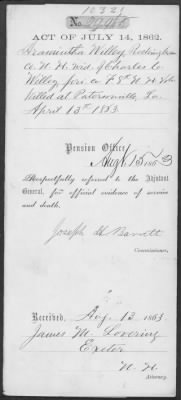 10321
No.
ACT OF JULY 14, 1862.
Araminta Willey Rockingham
Co N. H. wid of Charles C
Willey, Co F 8th N. H. Vols
killed at Patersonville, La.
April 13th 1863
Pension Office,
Augt 15 1863
Respectfully referred to the Adjutant
General, for official evidence of service
and death.
Joseph H Barrett
Commissioner.
Received, Aug. 13 1863
James M. Lovering
Exeter
N. H.
Attorney.